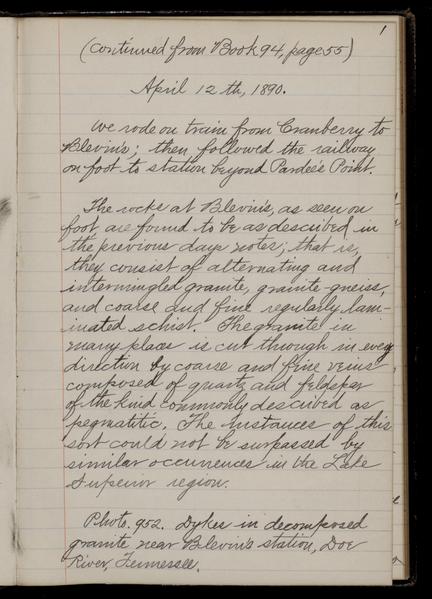 1
(Continued from Book 94, page 55)
April 12th, 1890.
We rode on train from Cranberry to
Blevin's; then followed the railway
on foot to station beyond Pardee's Point.
The rocks at Blevin's, as seen on
foot are found to be as described in
the previous days notes; that is,
they consist of alternating and
intermingled granite, granite-gneiss,
and coarse and fine regularly lam-
inated schist. The granite in
many places is cut through in every
direction by coarse and fine veins
composed of quartz and feldspar
of the kind commonly described as
pegmatitic. The instances of this
sort could not be surpassed by
similar occurrences in the Lake
Superior region.
Photo. 952. Dykes in decomposed
granite near Blevin's station, Doe
River, Tennessee.